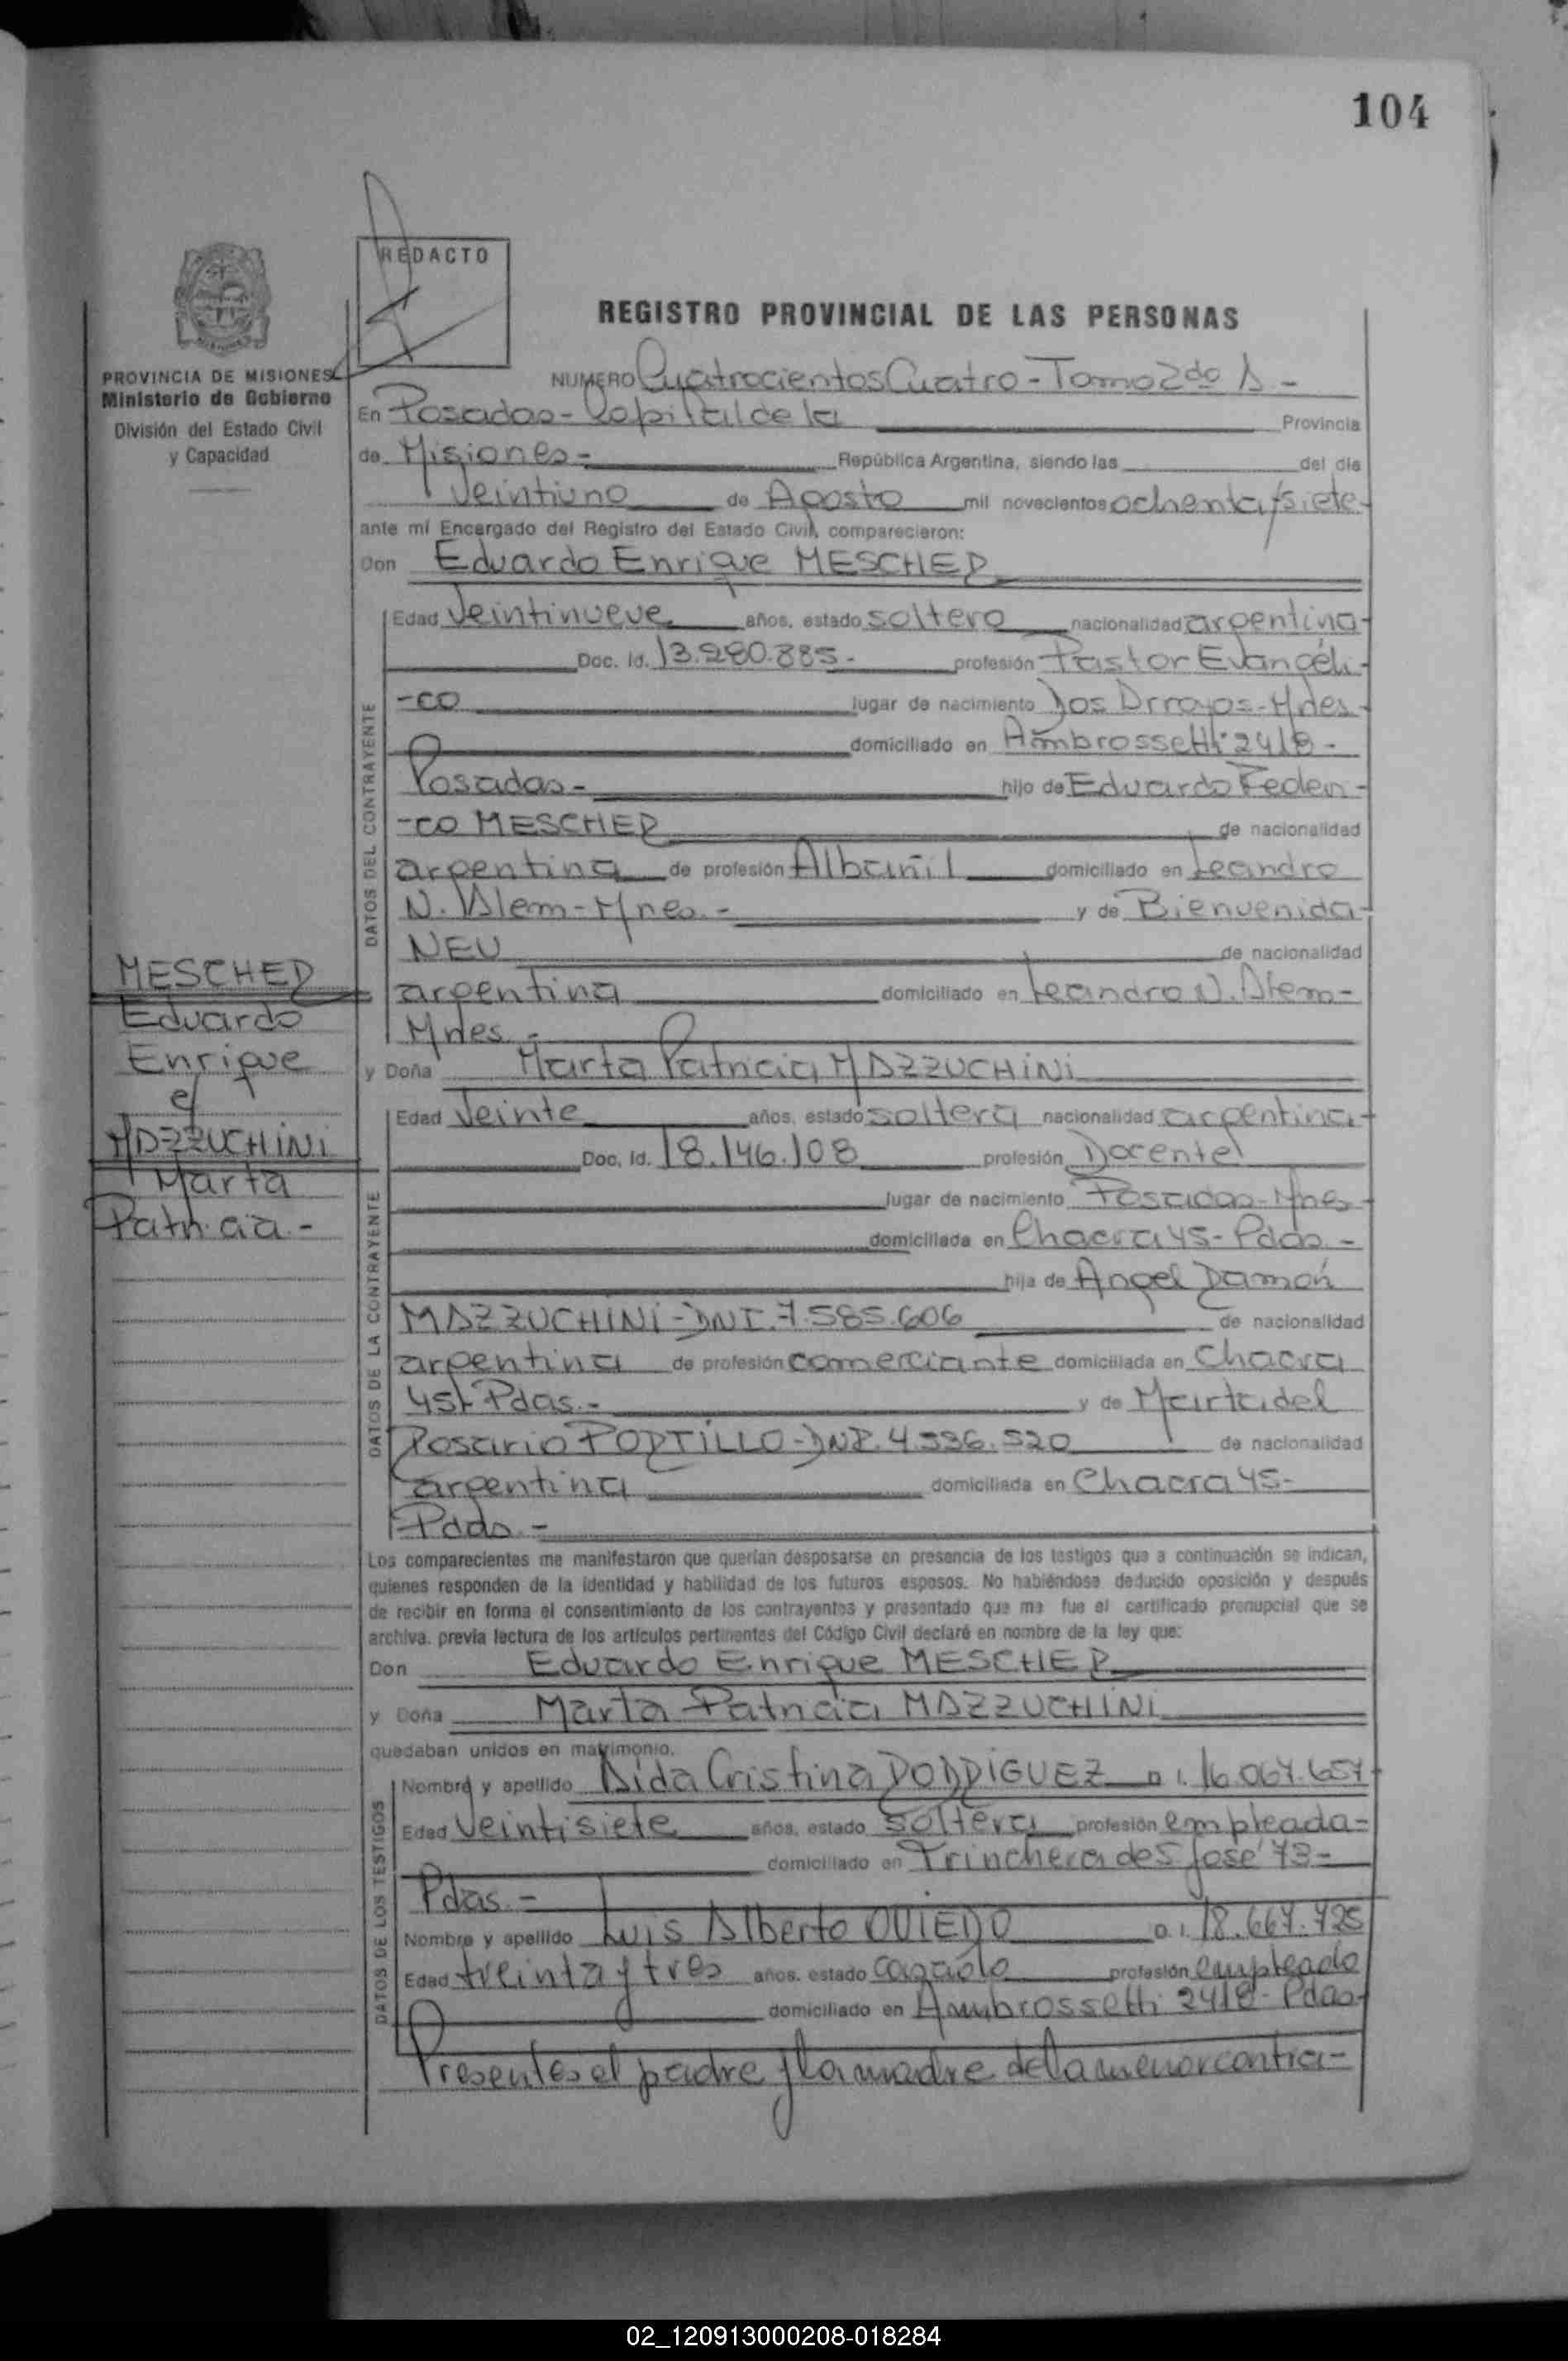 104
REDACTO
REGISTRO PROVINCIAL DE LAS PERSONAS
PROVINCIA DE MISIONES
Ministerio de Gobierno
División del Estado Civil
y Capacidad
NUMERO Cuatrocientos Cuatro - Tomo 2do A -
En Posadas - Capital de la Provincia
de Misiones - República Argentina, siendo las del día
veintiuno de Agosto mil novecientos ochenta y siete
ante mí Encargado del Registro del Estado Civil, comparecieron:
Don Eduardo Enrique MESCHER
Edad Veintinueve años, estado soltero nacionalidad argentina
Doc. Id. 13.280.885.- profesión Pastor Evangéli-
-co lugar de nacimiento Dos Arroyos - Mnes -
domiciliado en Ambrossetti 2418 -
Posadas - hijo de Eduardo Federi-
-co MESCHER de nacionalidad
argentina de profesión Albañil domiciliado en Leandro
N. Alem - Mnes. - y de Bienvenida
NEU de nacionalidad
argentina domiciliado en Leandro N. Alem -
Mnes. -
y Doña Marta Patricia MAZZUCHINI
MESCHER
Eduardo
Enrique
c/
MAZZUCHINI
Marta
Patricia -
Edad Veinte años, estado soltera nacionalidad argentina
Doc. Id. 18.146.108 profesión Docente
lugar de nacimiento Posadas - Mnes -
domiciliada en Chacra 45 - Pdas -
hija de Angel Ramón
MAZZUCHINI - DNI. 7.585.606 de nacionalidad
argentina de profesión comerciante domiciliada en Chacra
45 - Pdas. - y de Marta del
Rosario PORTILLO - DNI. 4.536.520 de nacionalidad
argentina domiciliada en Chacra 45 -
Pdas -
DATOS DEL CONTRAYENTE
DATOS DE LA CONTRAYENTE
Los comparecientes me manifestaron que querían desposarse en presencia de los testigos que a continuación se indican,
quienes responden de la identidad y habilidad de los futuros esposos. No habiéndose deducido oposición y después
de recibir en forma el consentimiento de los contrayentes y presentado que me fue el certificado prenupcial que se
archiva, previa lectura de los artículos pertinentes del Código Civil declaré en nombre de la ley que:
Don Eduardo Enrique MESCHER
y Doña Marta Patricia MAZZUCHINI
quedaban unidos en matrimonio.
DATOS DE LOS TESTIGOS
Nombre y apellido Aida Cristina RODRIGUEZ D. I. 16.067.657
Edad Veintisiete años, estado soltera profesión empleada -
domiciliado en Trinchera de S José 73 -
Pdas. -
Nombre y apellido Luis Alberto OVIEDO D. I. 18.667.725
Edad treinta y tres años, estado casado profesión empleado
domiciliado en Ambrossetti 2418 - Pdas -
Presentes el padre y la madre de la menor contra-
02_120913000208-018284